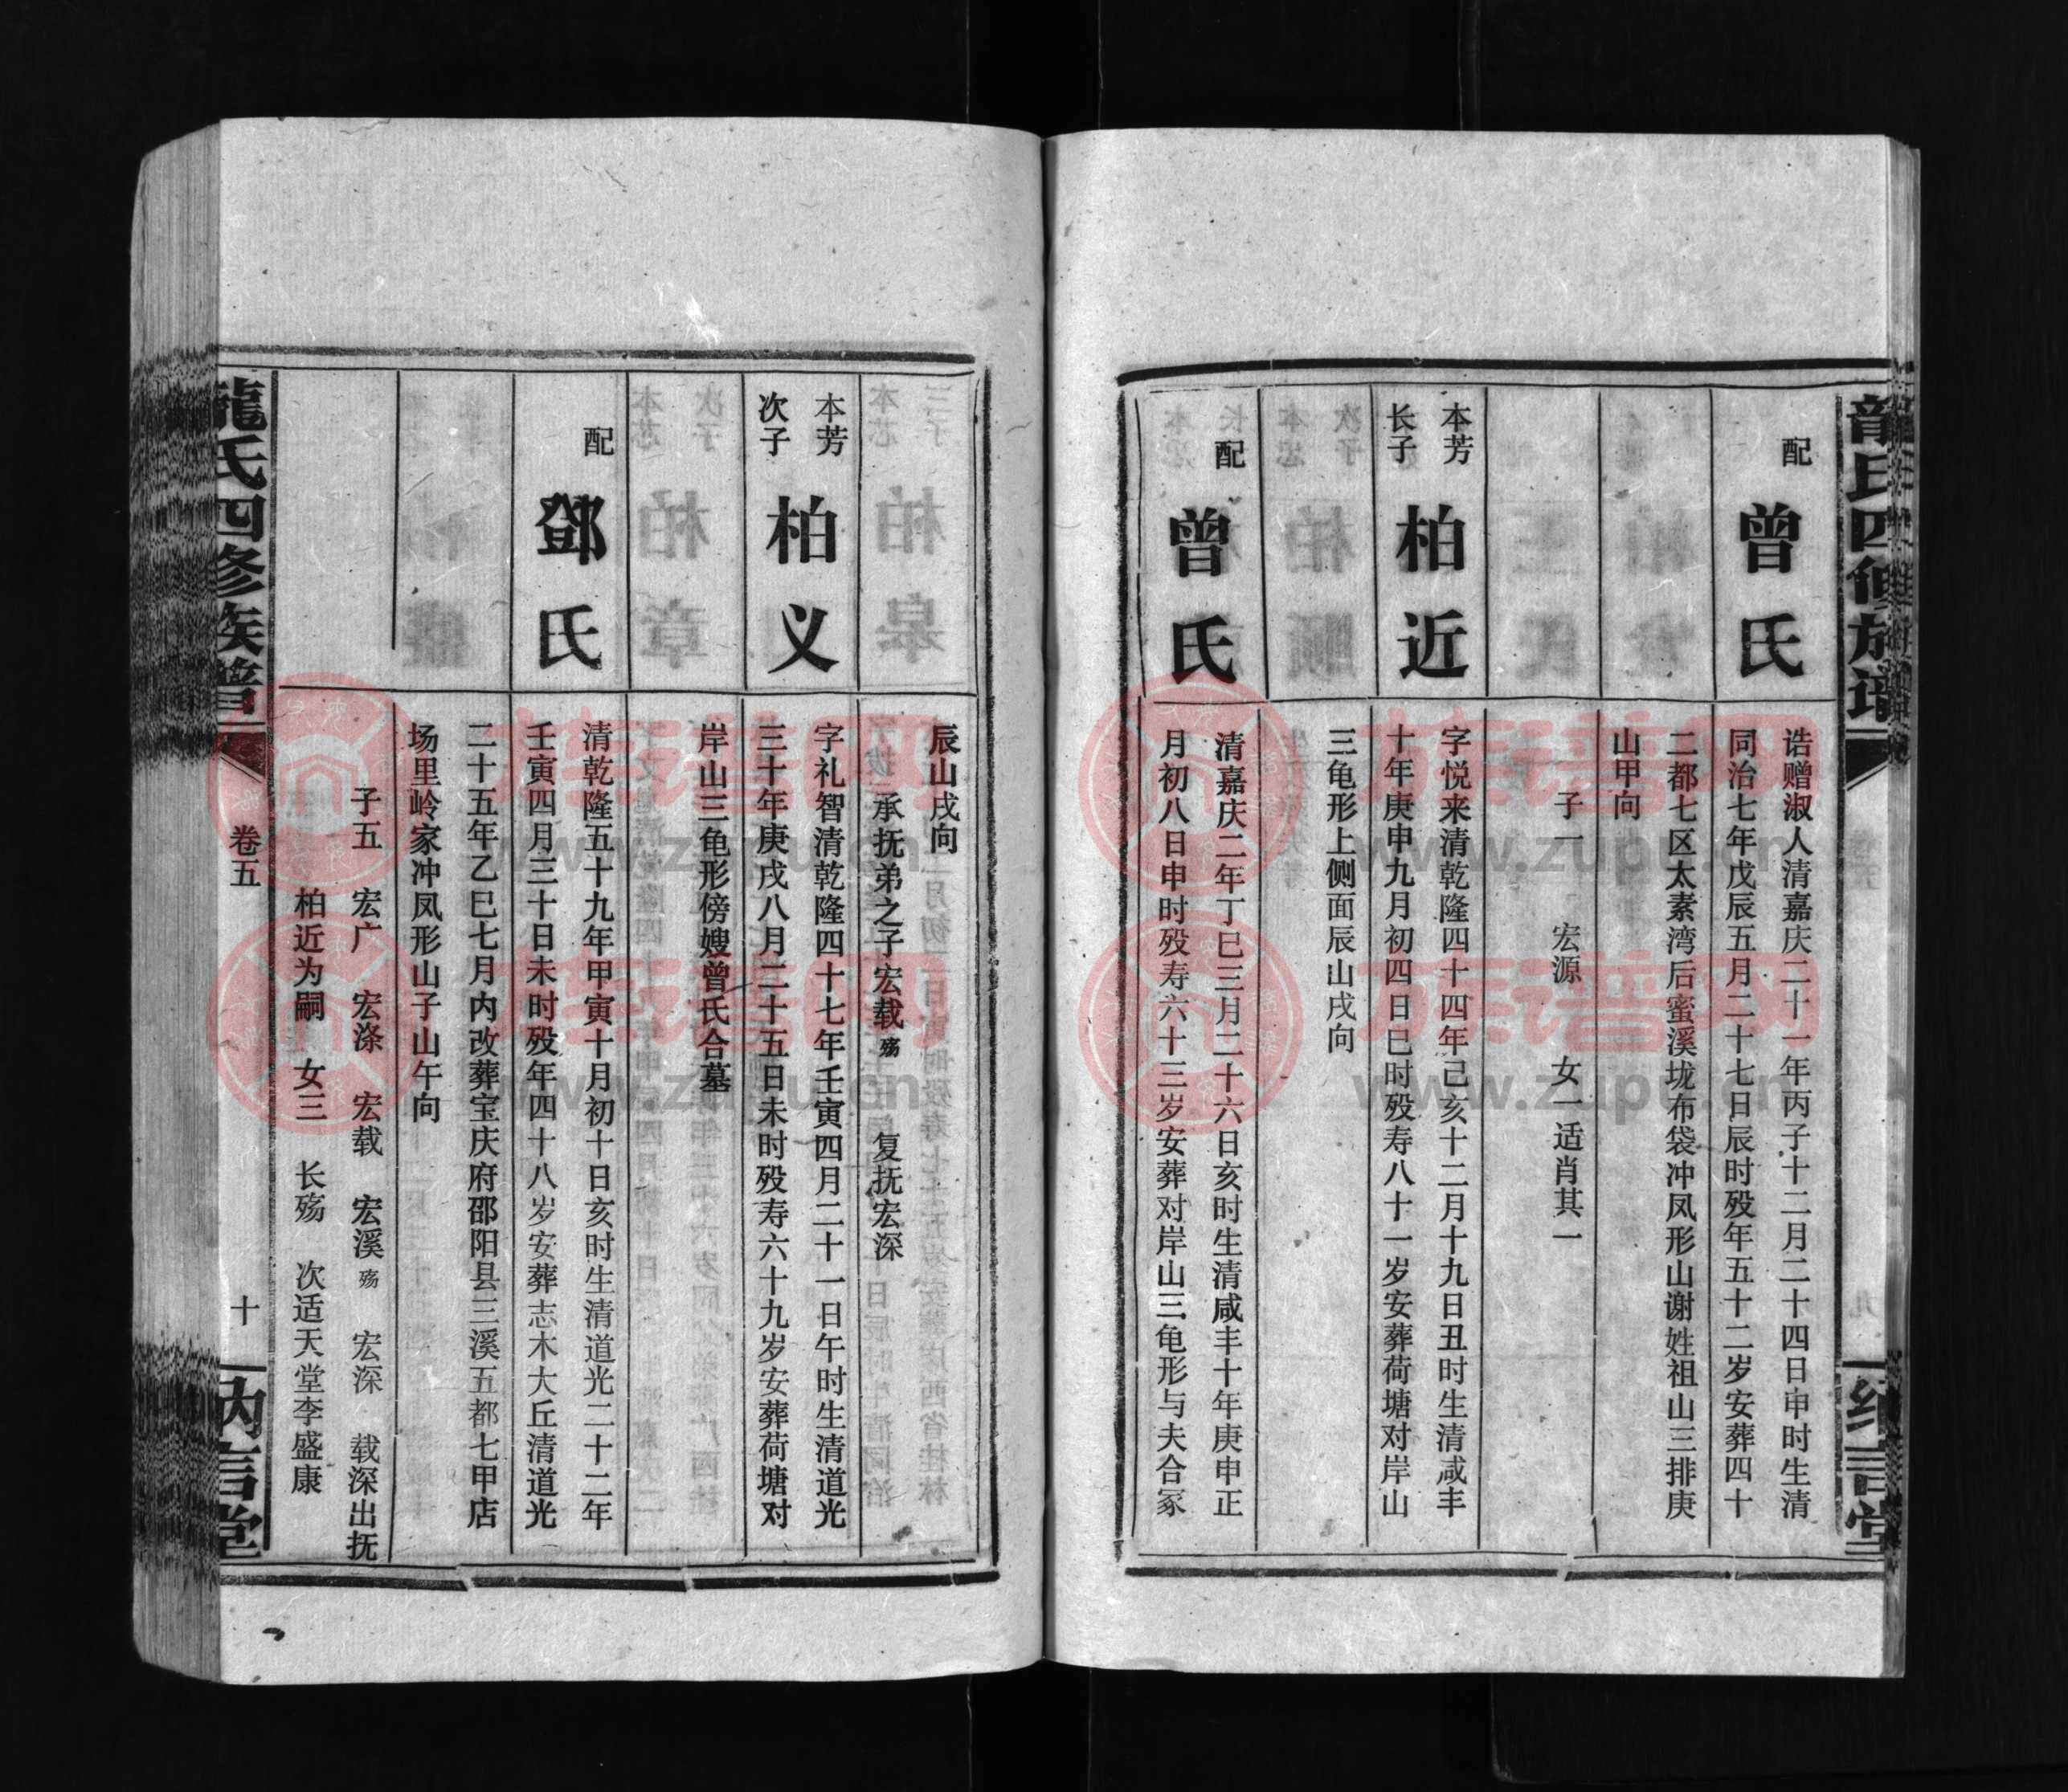 龍氏四修族谱
纳言堂
配
曾氏
诰赠淑人清嘉庆二十一年丙子十二月二十四日申时生清
同治七年戊辰五月二十七日辰时殁年五十二岁安葬四十
二都七区太素湾后蜜溪垅布袋冲凤形山谢姓祖山三排庚
山甲向
子一 宏源 女一适肖其一
本芳
长子
柏近
字悦来清乾隆四十四年己亥十二月十九日丑时生清咸丰
十年庚申九月初四日巳时殁寿八十一岁安葬荷塘对岸山
三龟形上侧面辰山戌向
配
曾氏
清嘉庆二年丁巳三月二十六日亥时生清咸丰十年庚申正
月初八日申时殁寿六十三岁安葬对岸山三龟形与夫合冢
辰山戌向
承抚弟之子宏载殇 复抚宏深
本芳
次子
柏义
字礼智清乾隆四十七年壬寅四月二十一日午时生清道光
三十年庚戌八月二十五日未时殁寿六十九岁安葬荷塘对
岸山三龟形傍嫂曾氏合墓
配
鄧氏
清乾隆五十九年甲寅十月初十日亥时生清道光二十二年
壬寅四月三十日未时殁年四十八岁安葬志木大丘清道光
二十五年乙巳七月内改葬宝庆府邵阳县三溪五都七甲店
场里岭家冲凤形山子山午向
子五 宏广 宏涤 宏载 宏溪殇 宏深 载深出抚
柏近为嗣 女三 长殇 次适天堂李盛康
龍氏四修族普
卷五
十
纳言堂
族谱网
www.zupu.cn
族谱网
www.zupu.cn
族谱网
www.zupu.cn
族谱网
www.zupu.cn